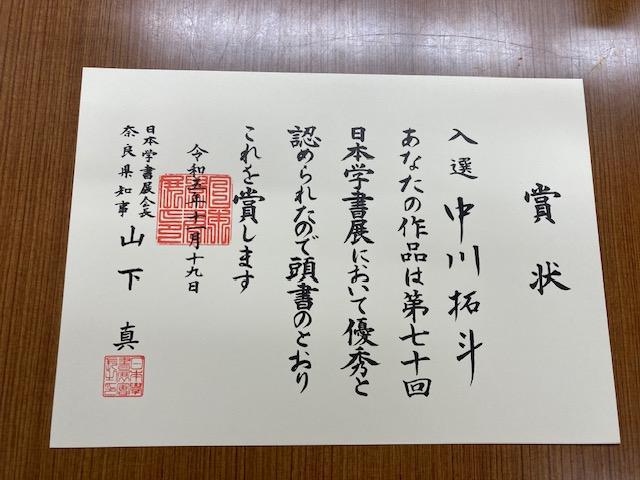 賞状
入選 中川拓斗
あなたの作品は第七十回
日本学書展において優秀と
認められたので頭書のとおり
これを賞します
令和五年十一月十九日
日本学書展会長
奈良県知事 山下 真